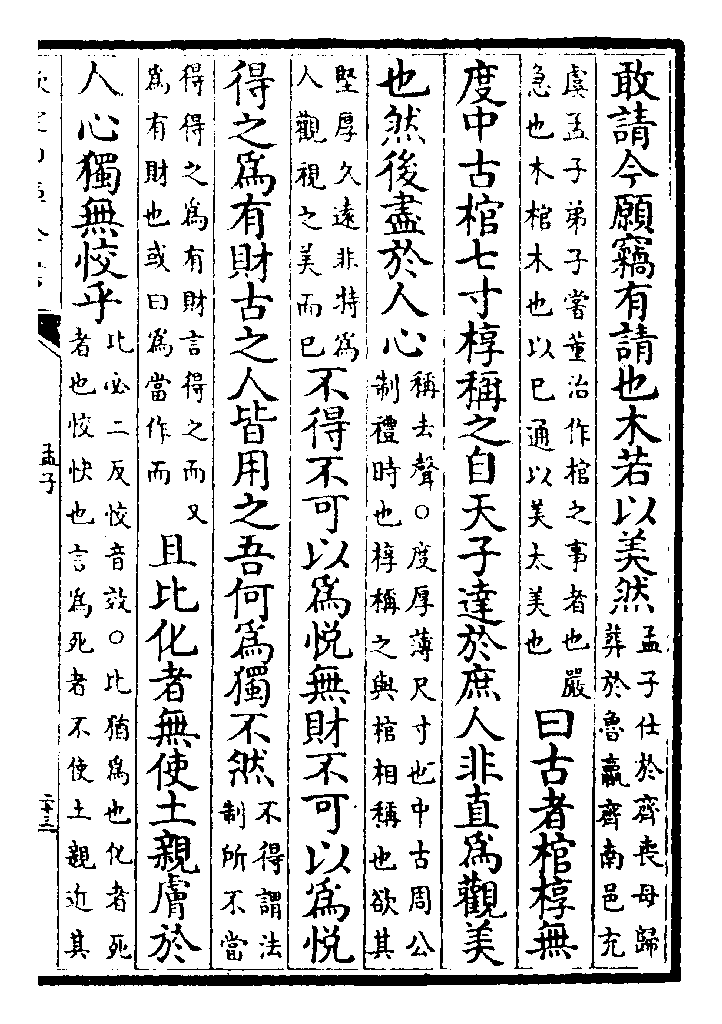 敢請今願竊有請也木若以美然孟子仕於齊喪母歸葬於魯嬴齊南邑充
虞孟子弟子嘗董治作棺之事者也嚴急也木棺木也以已通以美太美也曰古者棺椁無
度中古棺七寸椁稱之自天子達於庶人非直為觀美
也然後盡於人心稱去聲○度厚薄尺寸也中古周公制禮時也椁稱之與棺相稱也欲其
堅厚久遠非特為人觀視之美而已不得不可以為悅無財不可以為悅
得之為有財古之人皆用之吾何為獨不然不得謂法制所不當
得得之為有財言得之而又為有財也或曰為當作而且比化者無使土親膚於
人心獨無恔乎比必二反恔音效○比猶為也化者死者也恔快也言為死者不使土親近其
孟子
二十三